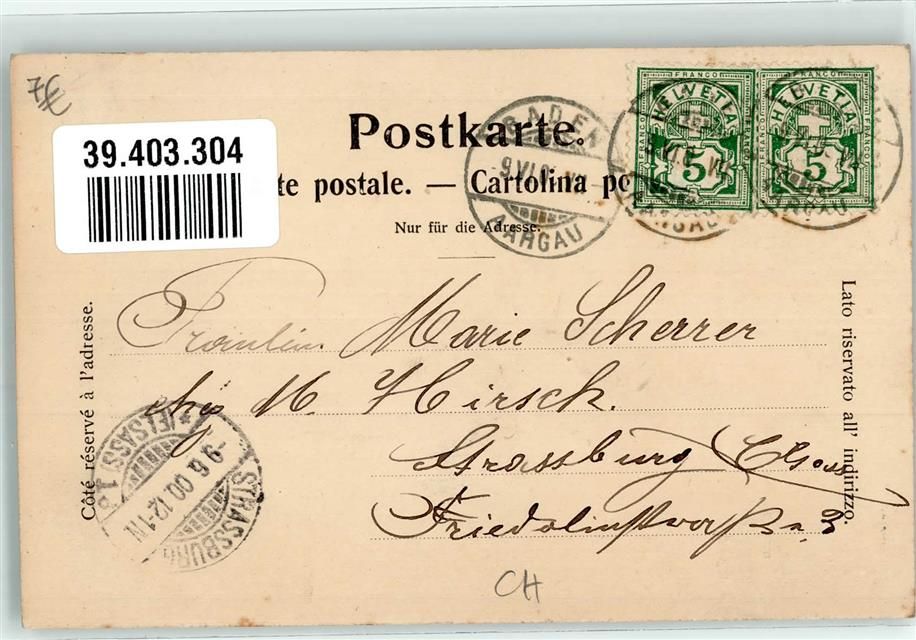 7€
39.403.304
Postkarte.
te postale. — Cartolina po
Nur für die Adresse.
FRANCO FRANCO
HELVETIA HELVETIA
5 5
BADEN
AARGAU
Côté réservé à l'adresse.
Lato riservato all' indirizzo.
Fräulein Marie Scherrer
chez M. Hirsch.
Strassburg Elsass
Friedolinstrasse
STRASSBURG
*(ELSASS) 1
-9.6.00.12-1N
CH